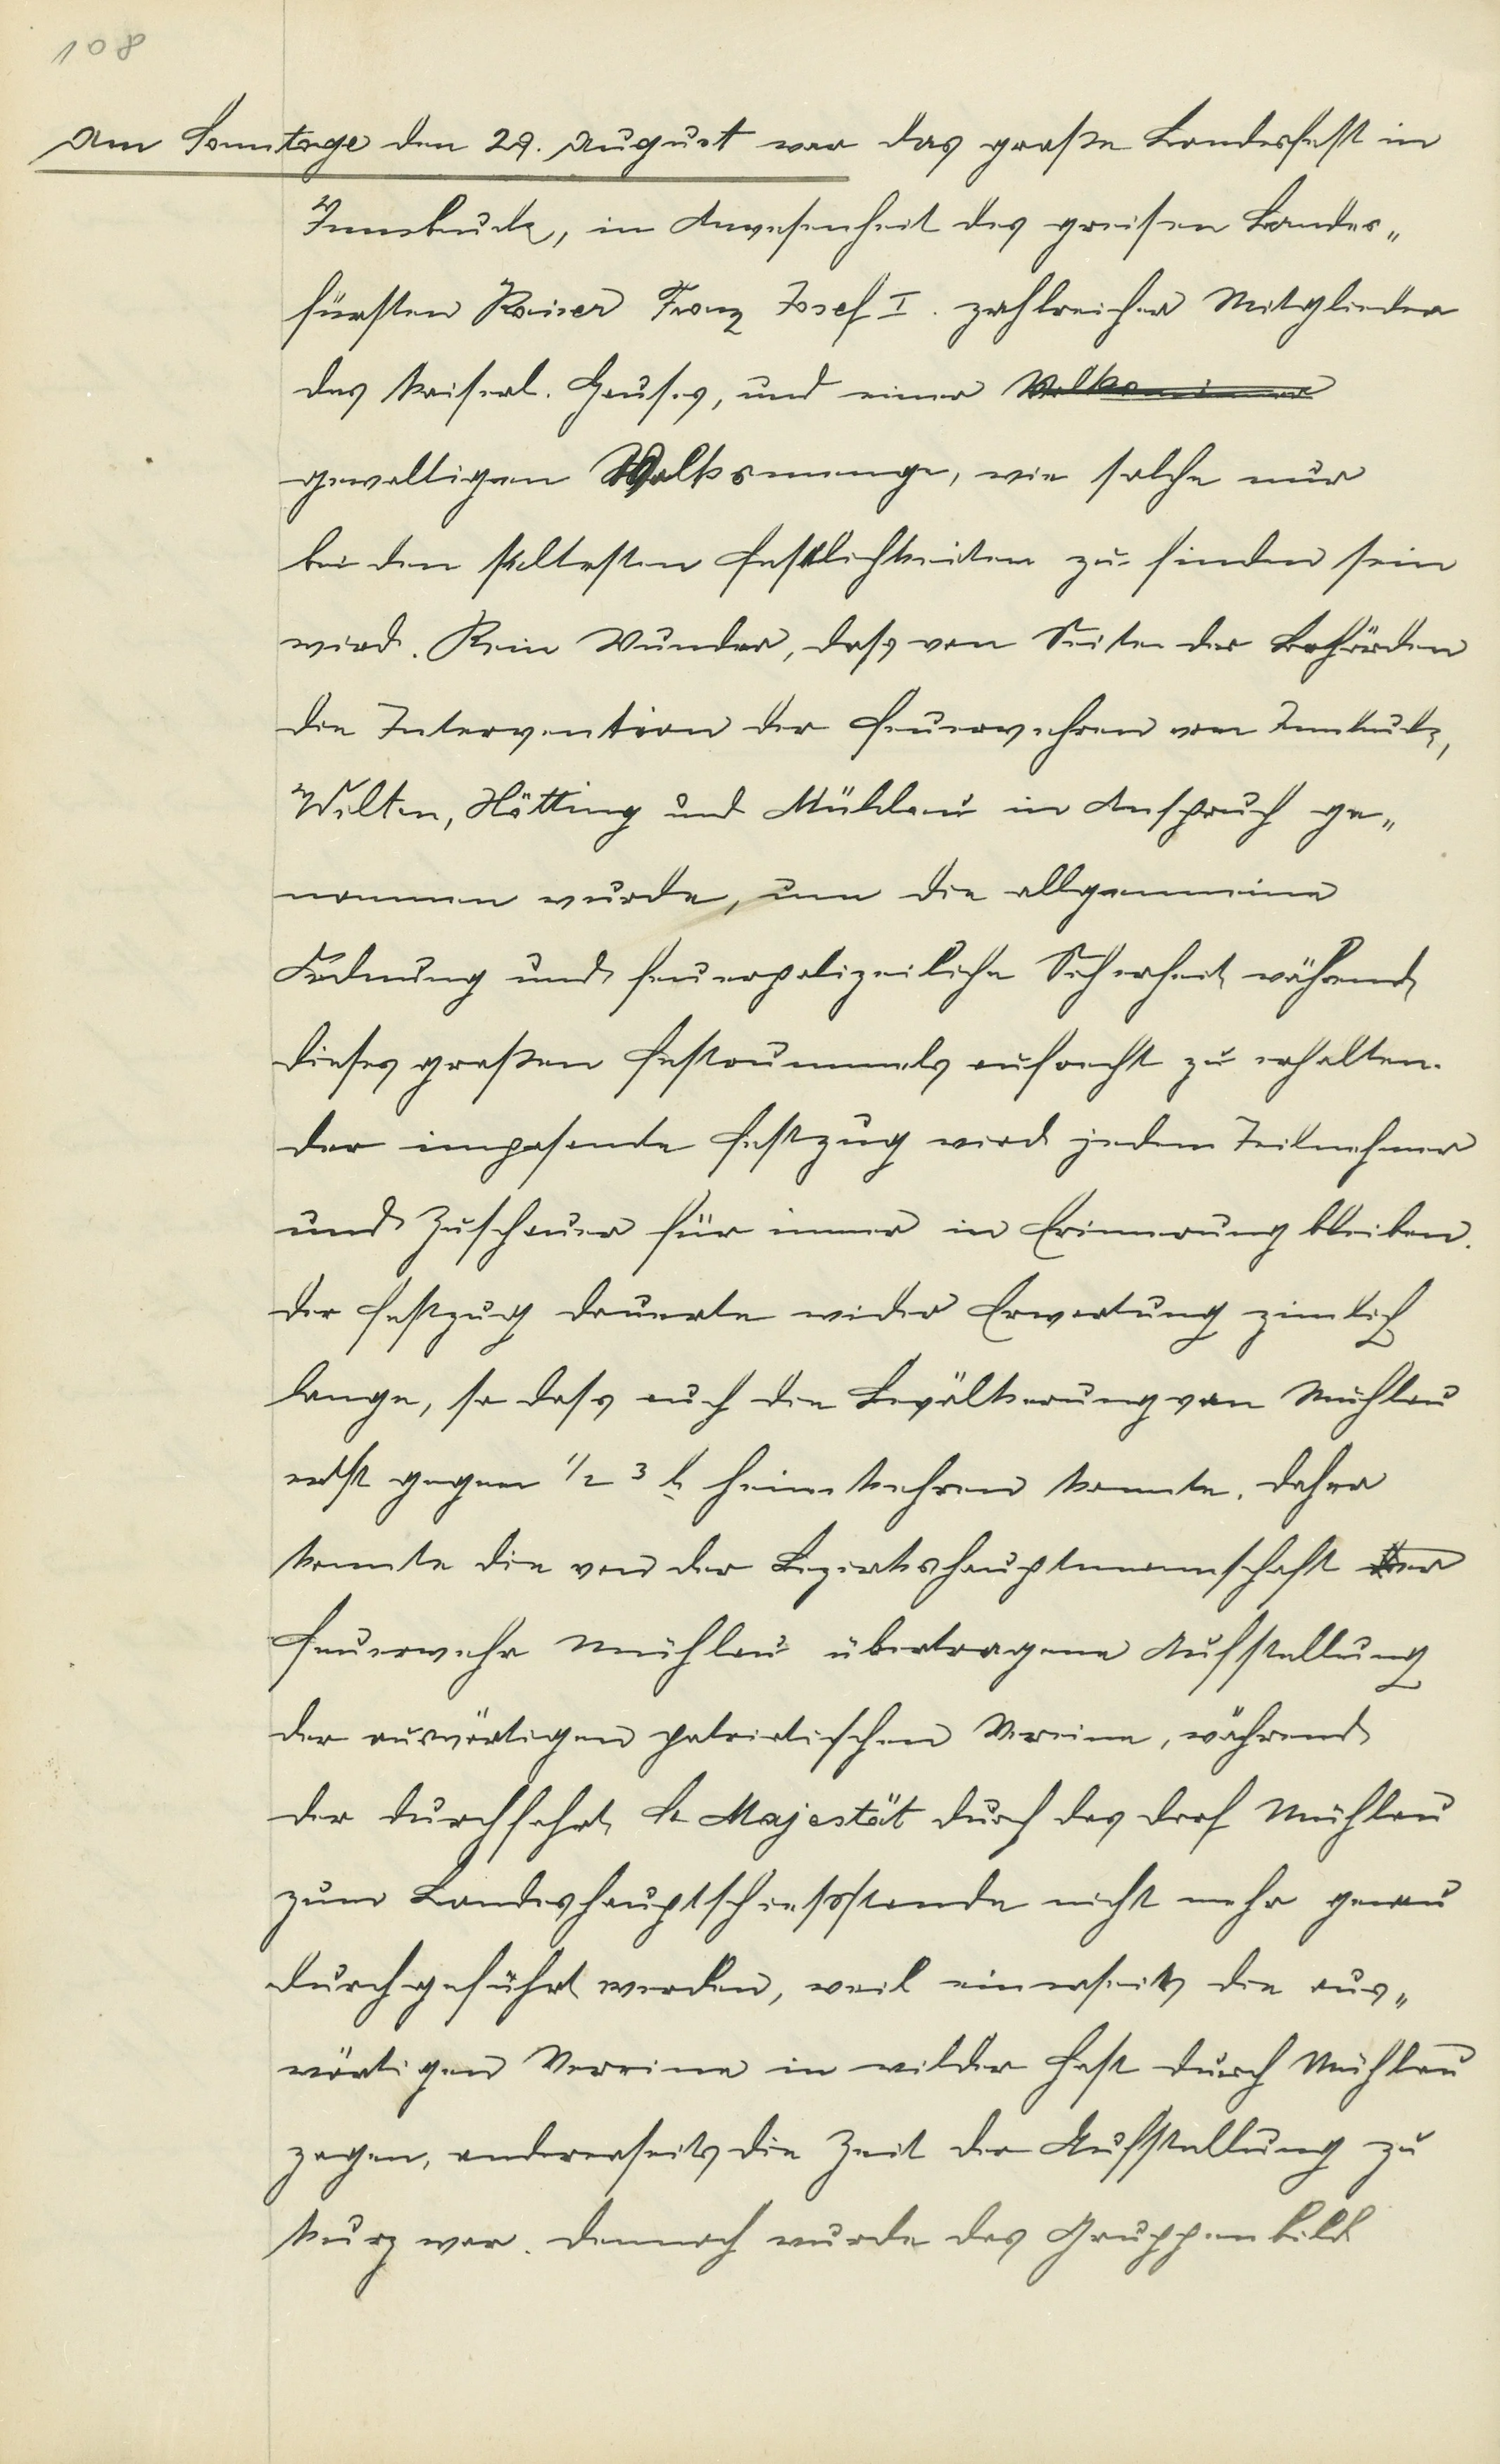 108
Am Sonntage den 29. August war das große Landesfest in
Innsbruck, in Anwesenheit des greisen Landes„
fürsten Kaiser Franz Josef I. zahlreicher Mitglieder
des kaiserl. Hauses, und einer
gewaltigen Volksmenge, wie solche nur
bei den seltesten Festlichkeiten zu finden sein
wird. Kein Wunder, dass von Seiten der Behörden
die Intervention der Feuerwehren von Innsbruck,
Wilten, Hötting und Mühlau in Anspruch ge„
nommen wurde, um die allgemeine
Ordnung und feuerpolizeiliche Sicherheit während
dieses großen Festrummels aufrecht zu erhalten.
Der imposante Festzug wird jedem Teilnehmer
und Zuschauer für immer in Erinnerung bleiben.
Der Festzug dauerte wider Erwartung zimlich
lange, so dass auch die Bevölkerung von Mühlau
erst gegen 1/2 3 h heimkehren konnte. Daher
konnte die von der Bezirkshauptmannschaft der
Feuerwehr Mühlau übertragene Aufstellung
der auswärtigen patriotischen Vereine, während
der Durchfahrt Sr Majestät durch das Dorf Mühlau
zum Landeshauptschießstande nicht mehr genau
durchgeführt werden, weil einerseits die aus„
wärtigen Vereine in wilder Hast durch Mühlau
zogen, andererseits die Zeit der Aufstellung zu
kurz war. Dennoch wurde das Gruppenbild